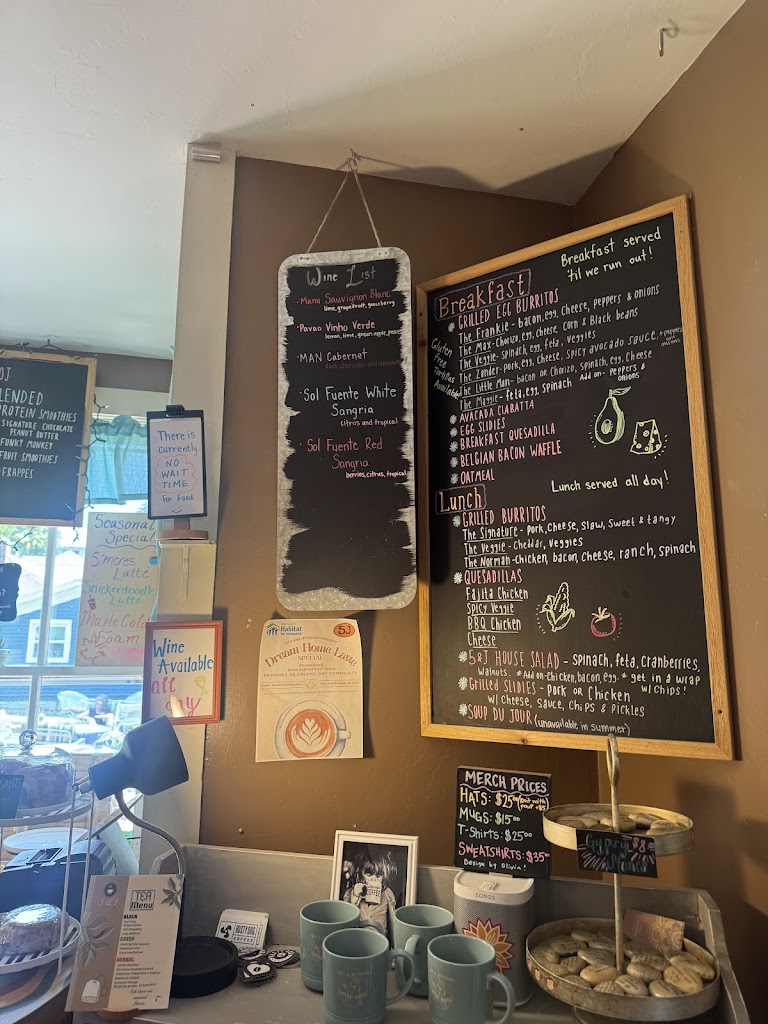 Wine List
Manu Sauvignon Blanc
lime, grapefruit, gooseberry
Pavao Vinho Verde
lemon, lime, green apple, pear
MAN Cabernet
dark cherries
Sol Fuente White
Sangria
citrus and tropical
Sol Fuente Red
Sangria
berries, citrus, tropical
Breakfast served
'til we run out!
Breakfast
GRILLED EGG BURRITOS
The Frankie - bacon, egg, cheese, peppers & onions
The Max - Chorizo, egg, cheese, Corn & Black beans
The Veggie - spinach, egg, feta, veggies
The Zonder - pork, egg, cheese, spicy avocado sauce, + peppers and onions
The Little Man - bacon or Chorizo, spinach, egg, cheese
The Maggie - feta, egg, spinach Add on - peppers & onions
Gluten
Free
Tortillas
Available!
AVACADA CIABATTA
EGG SLIDIES
BREAKFAST QUESADILLA
BELGIAN BACON WAFFLE
OATMEAL
Lunch served all day!
Lunch
GRILLED BURRITOS
The Signature - Pork, Cheese, Slaw, Sweet & tangy
The Veggie - Cheddar, Veggies
The Norman - Chicken, bacon, cheese, ranch, spinach
QUESADILLAS
Fajita Chicken
Spicy Veggie
BBQ Chicken
Cheese
5 & J HOUSE SALAD - spinach, feta, cranberries,
walnuts. * Add on - Chicken, bacon, egg * get in a wrap
w/ chips!
Grilled SLIDIES - PORK or Chicken
w/ Cheese, Sauce, Chips & Pickles
SOUP DU JOUR (unavailable in summer)
OJ
BLENDED
PROTEIN SMOOTHIES
SIGNATURE CHOCOLATE
PEANUT BUTTER
FUNKY MONKEY
FRUIT SMOOTHIES
FRAPPES
There is
currently
NO
WAIT
TIME
for food
Seasonal
Special
S'mores
Latte
Snickerdoodle
Latte
Maple Cold
Foam
Wine
Available
all
day
Habitat
for Humanity
5J
Dream Home Latte
SPECIAL
50 HOMES, 50 DREAMS, ONE COMMUNITY
MERCH PRICES
HATS: $25
MUGS: $15.00
T-Shirts: $25.00
SWEATSHIRTS: $35.00
Design by Olivia!
Gypsy $8
Stones
TEA
Menu
BLACK
GREEN
HERBAL
SONOS
RUSTY DOG
COFFEE
COFFEE